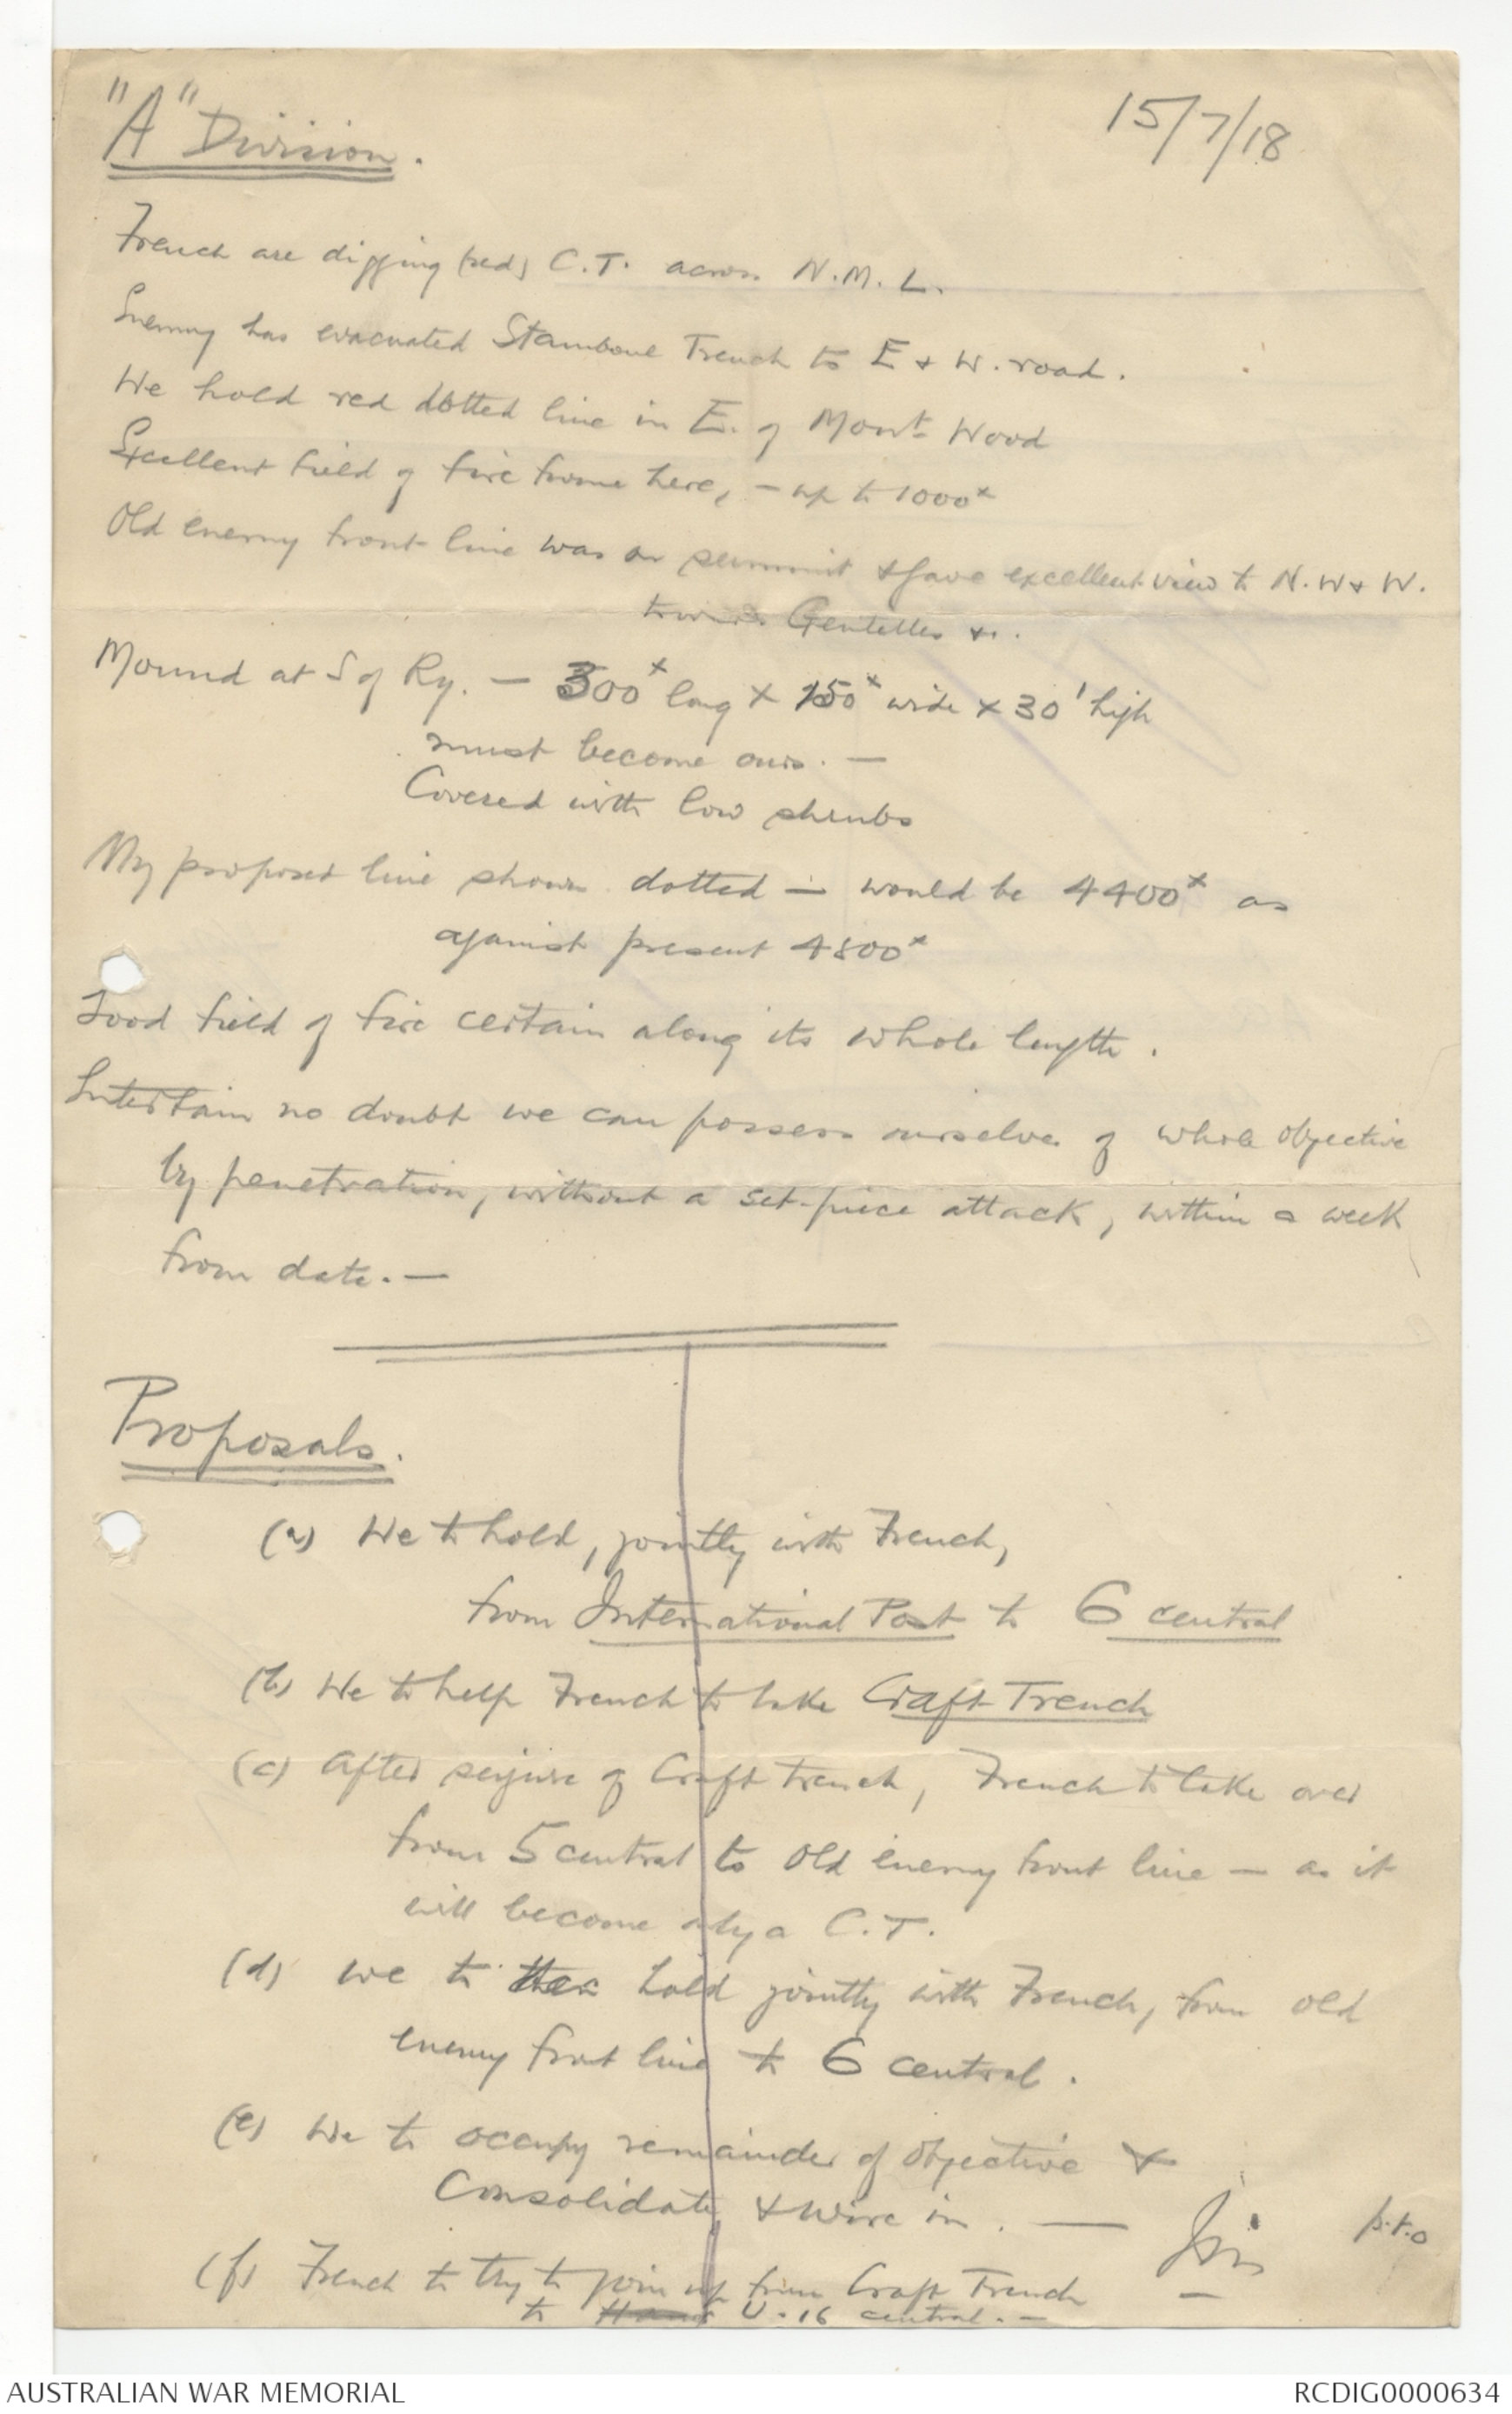 "A" Division.
15/7/18
French are digging (red) C.T. across N.M.L.
Enemy has evacuated Stamboul Trench to E & W. road.
We hold red dotted line in E. of Mont Wood
Excellent field of fire from here, - up to 1000x
Old enemy front line was on summit & gave excellent view to N.W & W.
towards Gentelles &c.
Mound at S of Ry. - 300x long x 150x wide x 30' high
must become ours. -
Covered with low shrubs
My proposed line shown dotted - would be 4400x as
against present 4800x
Good field of fire certain along its whole length.
Entertain no doubt we can possess ourselves of whole objective
by penetration, without a set-piece attack, within a week
from date. -
Proposals.
(a) We to hold, jointly with French,
from International Post to 6 central
(b) We to help French to take Craft Trench
(c) After seizure of Craft trench, French to take over
from 5 central to old enemy front line - as it
will become only a C.T.
(d) we to then hold jointly with French, from old
enemy front line to 6 central.
(e) We to occupy remainder of objective &
Consolidate & wire in. -
p.t.o
(f) French to try to join up from Craft Trench
to U.16 central. -
AUSTRALIAN WAR MEMORIAL
RCDIG0000634